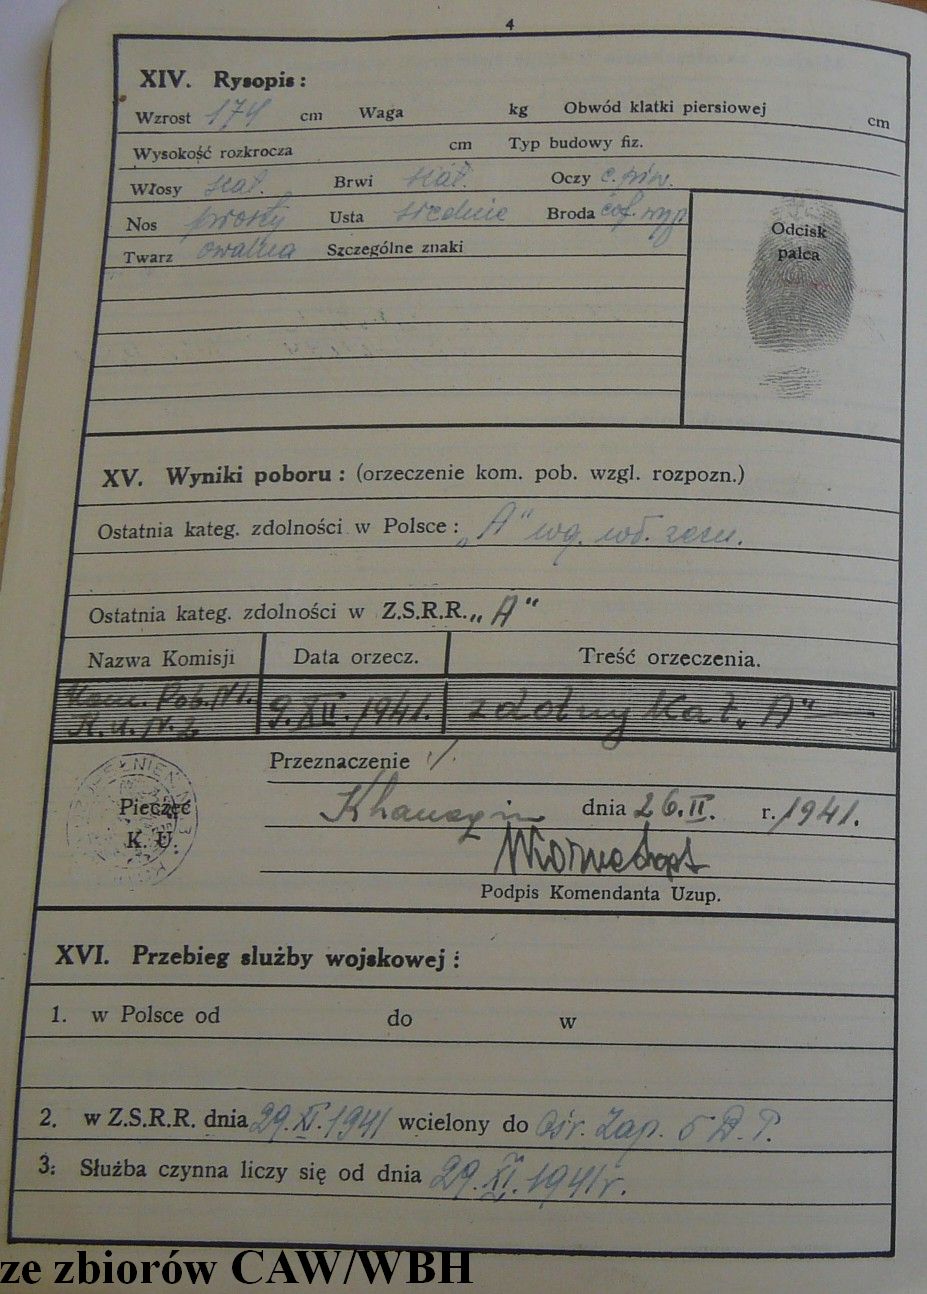 4
XIV. Rysopis :
Wzrost 174 cm Waga kg Obwód klatki piersiowej cm
Wysokość rozkrocza cm Typ budowy fiz.
Włosy szat. Brwi szat. Oczy c. piw.
Nos prosty Usta średnie Broda cof. wyp
Twarz owalna Szczególne znaki
Odcisk
palca
XV. Wyniki poboru : (orzeczenie kom. pob. wzgl. rozpozn.)
Ostatnia kateg. zdolności w Polsce : „A" wg. wł. zezn.
Ostatnia kateg. zdolności w Z.S.R.R. „A"
Nazwa Komisji Data orzecz. Treść orzeczenia.
Kom. Pob. N1.
K.U. N.2 9.XII.1941. zdolny kat. „A"
Przeznaczenie ./.
Pieczęć
K. U.
dnia 26.II. r. 1941.
Podpis Komendanta Uzup.
XVI. Przebieg służby wojskowej :
1. w Polsce od do w
2. w Z.S.R.R. dnia 29.XI.1941 wcielony do Ośr. Zap. 5 D.P.
3. Służba czynna liczy się od dnia 29.XI.1941r.
ze zbiorów CAW/WBH